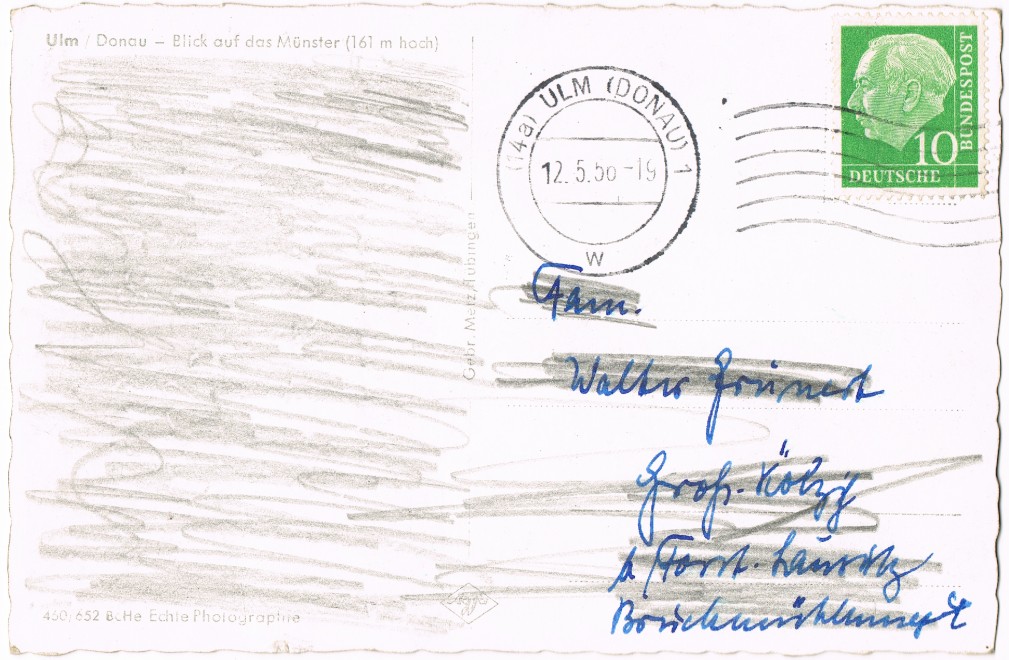 Ulm / Donau – Blick auf das Münster (161 m hoch)
(14a) ULM (DONAU) 1
12.5.56-19
w
10
DEUTSCHE
BUNDESPOST
Gebr. Metz, Tübingen
Fam.
Walter Grünert
Groß-Kölzig
b. Forst-Lausitz
450/652 BcHe Echte Photographie